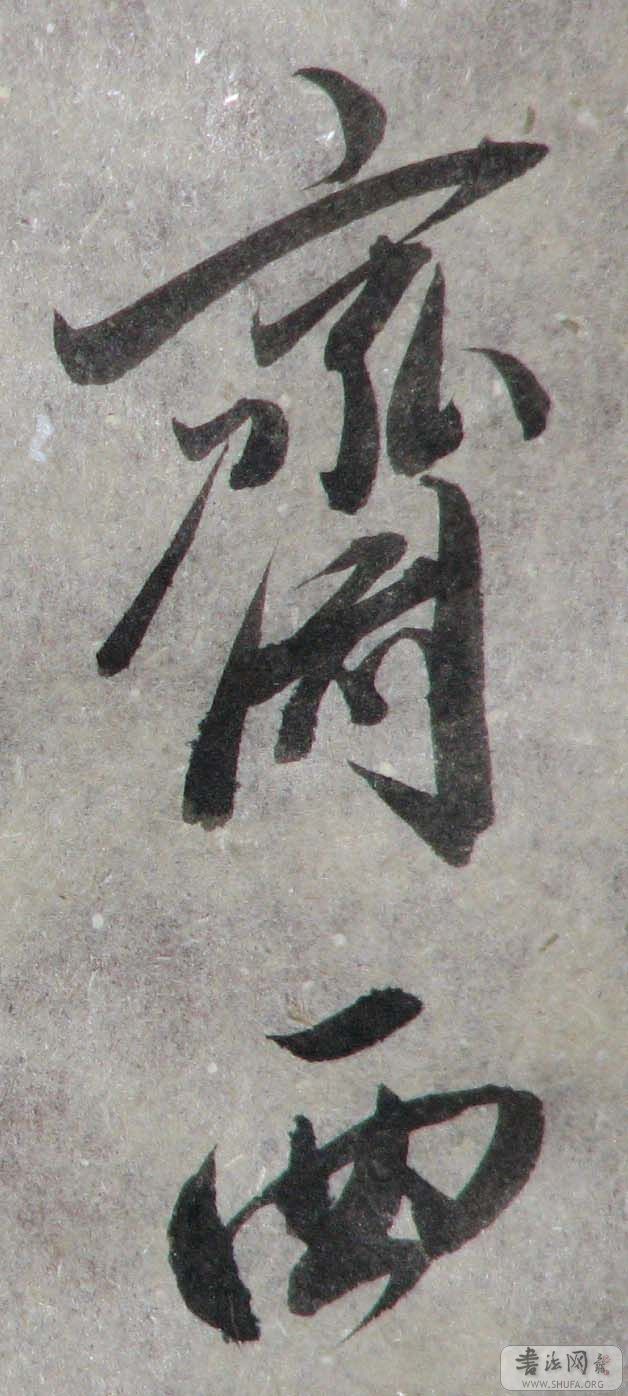 齋
西
書法网
WWW.SHUFA.ORG